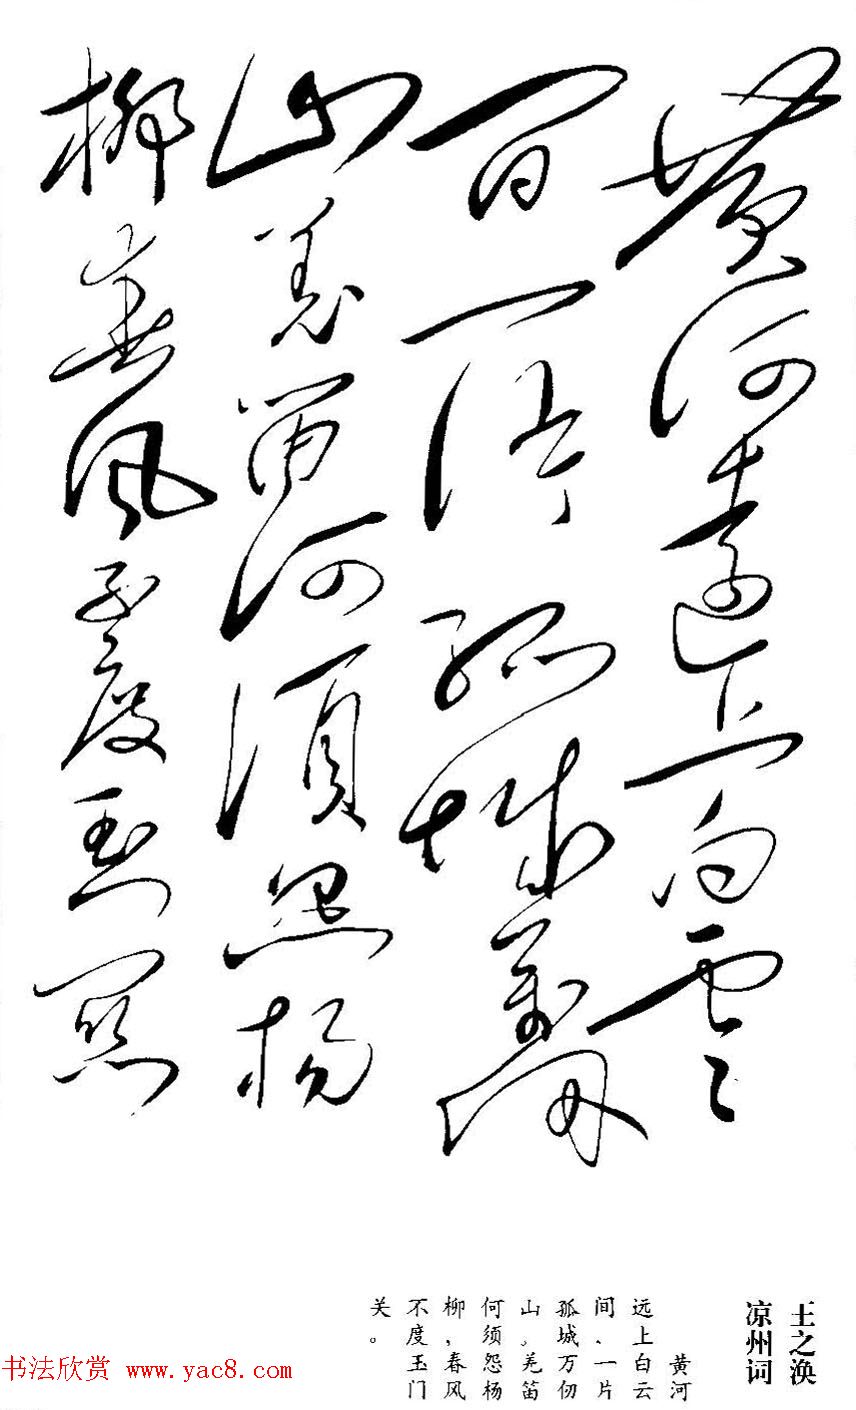 黄河遠上白雲
间一片孤城萬仞
山羌笛何須怨杨
柳春风不度玉関
王之涣
凉州词
黄河
远上白云
间、一片
孤城万仞
山。羌笛
何须怨杨
柳,春风
不度玉门
关。
书法欣赏 www.yac8.com